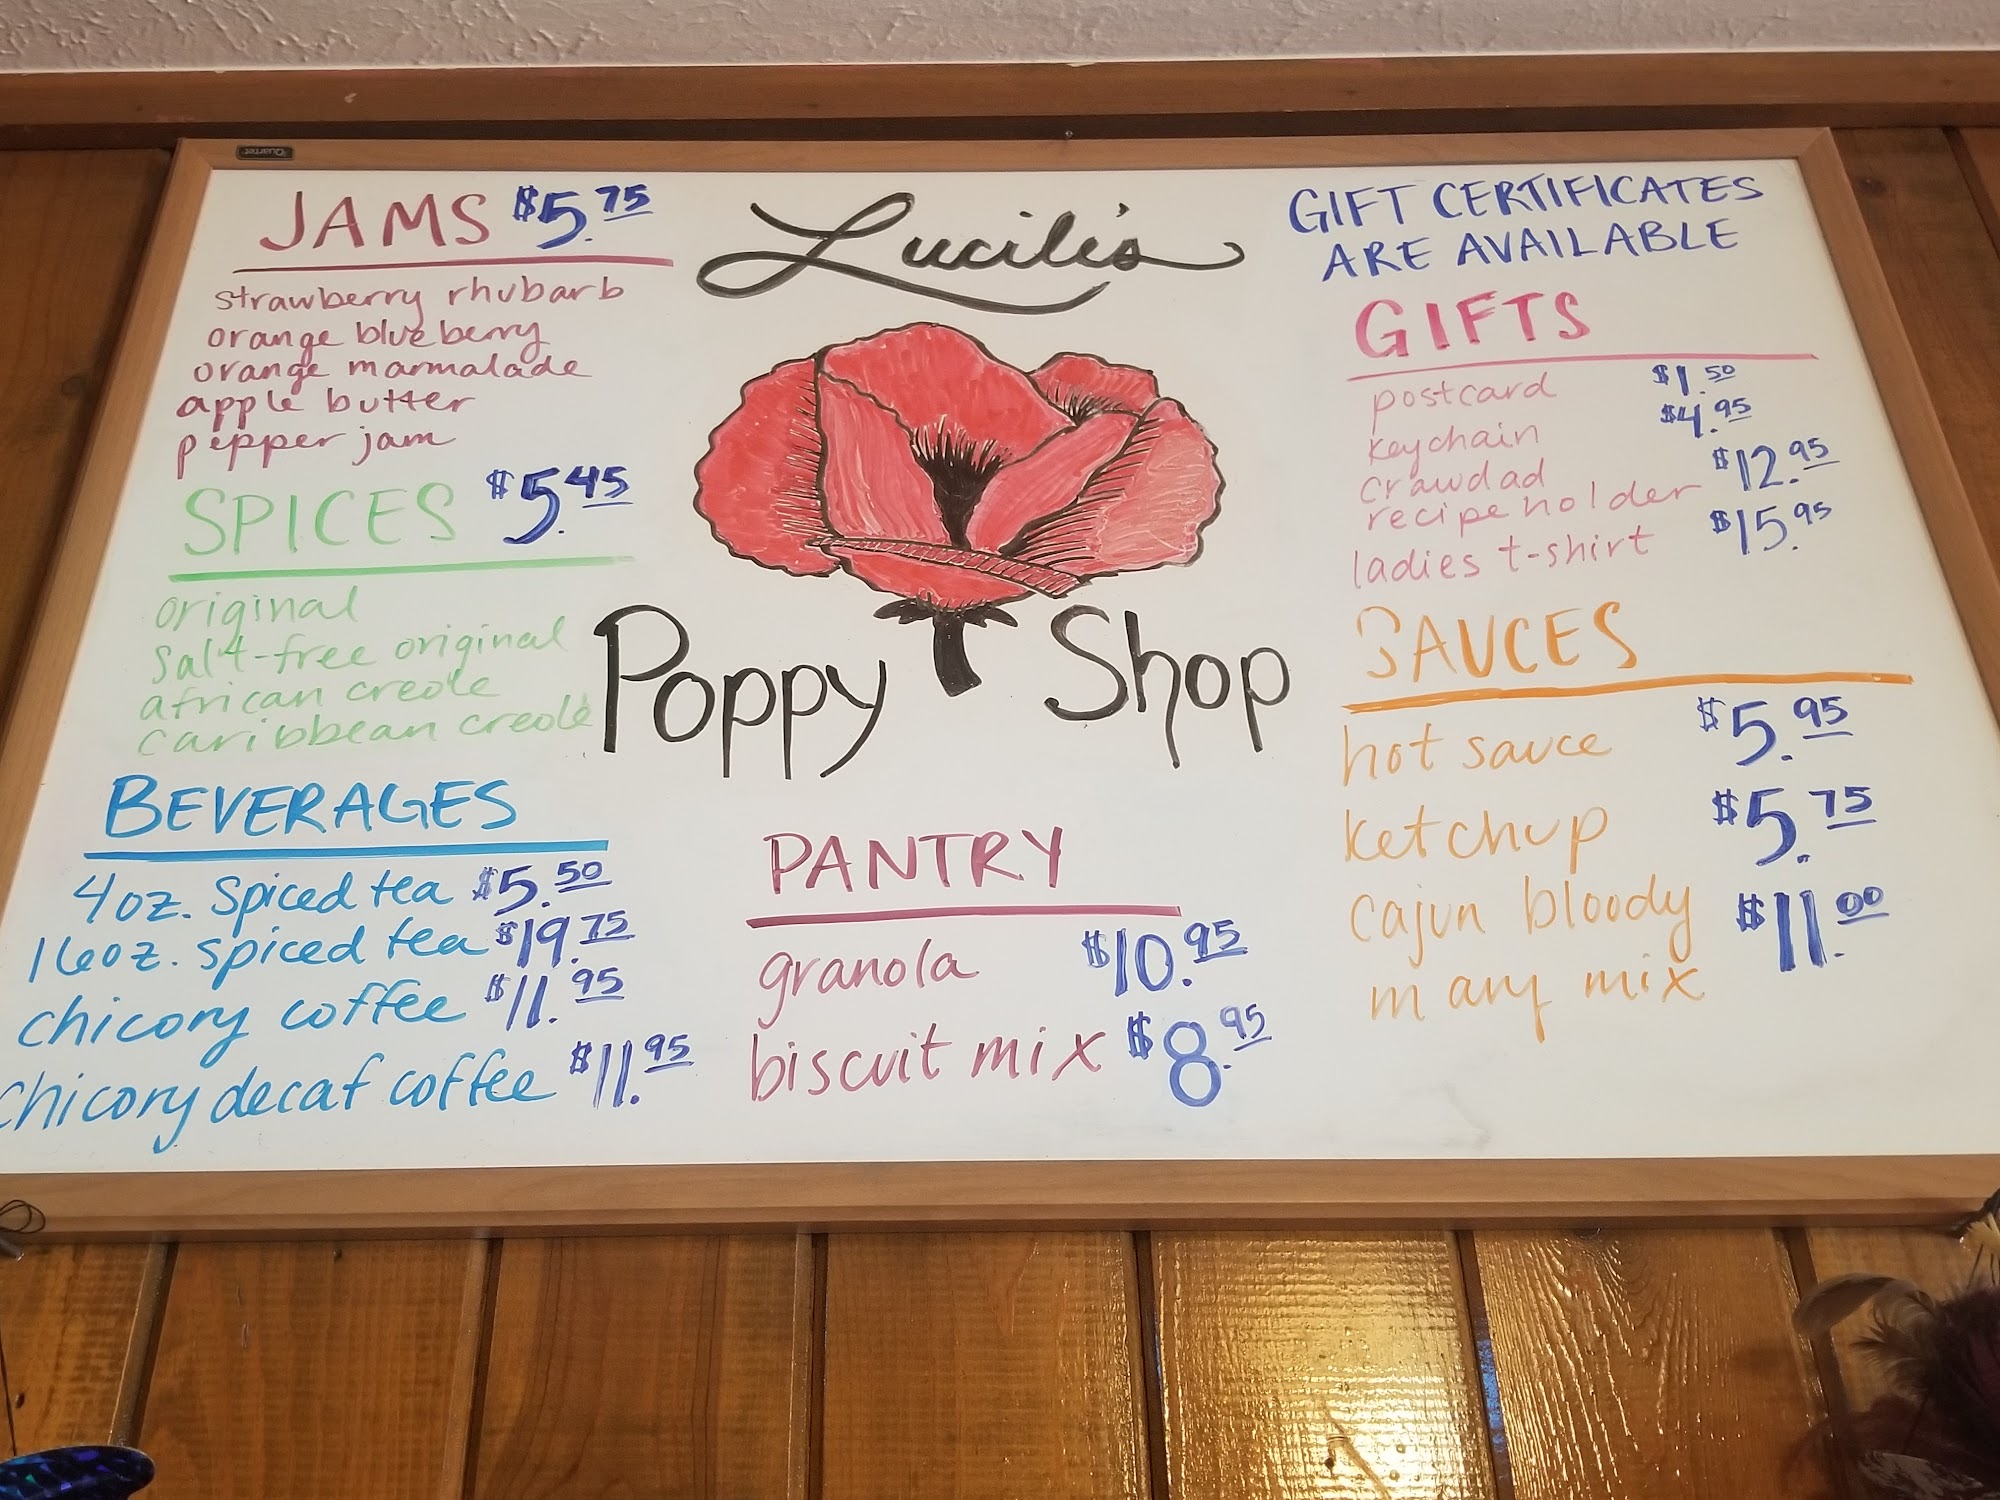 Quartet
JAMS $5.75
strawberry rhubarb
orange blueberry
orange marmalade
apple butter
pepper jam
SPICES $5.45
original
salt-free original
african creole
caribbean creole
BEVERAGES
4oz. spiced tea $5.50
16oz. spiced tea $19.75
chicory coffee $11.95
chicory decaf coffee $11.95
Lucile's
Poppy Shop
PANTRY
granola $10.95
biscuit mix $8.95
GIFT CERTIFICATES
ARE AVAILABLE
GIFTS
postcard $1.50
keychain $4.95
crawdad
recipe holder $12.95
ladies t-shirt $15.95
SAUCES
hot sauce $5.95
ketchup $5.75
cajun bloody $11.00
mary mix